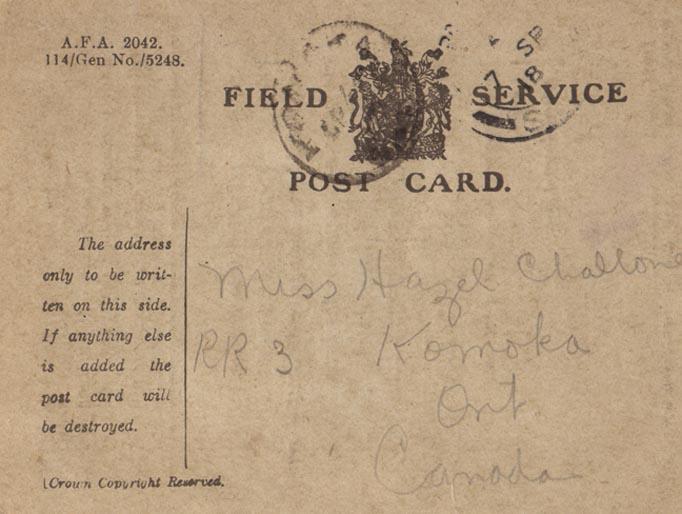 A.F.A. 2042.
114/Gen No./5248.
FIELD SERVICE
POST CARD.
7 SP
18
The address
only to be writ-
ten on this side.
If anything else
is added the
post card will
be destroyed.
Miss Hazel Challone
RR 3 Komoka
Ont.
Canada
(Crown Copyright Reserved.